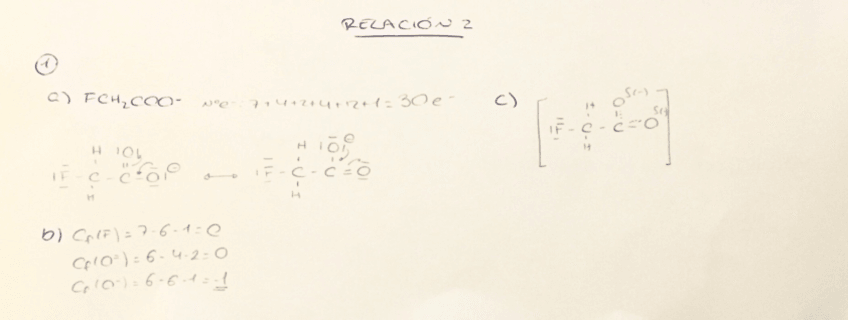 RELACIÓN 2
1
a) FCH₂COO- Nºe- 7+4+2+4+12+1=30e-
H |O|
|F - C - C - O|⊖ ↔ |F - C - C = O
H
H |O|⊖
H
b) Cf(F) = 7-6-1=0
Cf(O=) = 6-4-2=0
Cf(O-) = 6-6-1=-1
c)
H O δ(-)
|F - C - C = O δ(-)
H